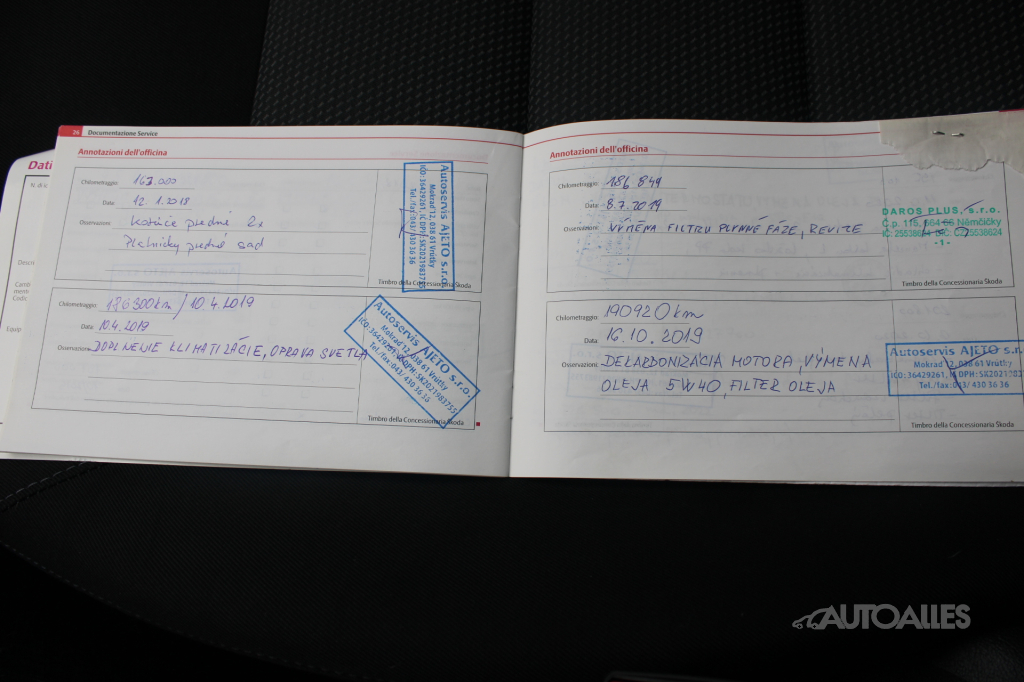 26 Documentazione Service
Annotazioni dell'officina
Dati
N. di
Chilometraggio: 163.000
Data: 12.1.2018
Osservazioni: Kotúče predné 2x
Platničky predné sad
Autoservis AJETO s.r.o.
Mokrad 12, 038 61 Vrútky
IČO: 36429261, IČ DPH: SK2021983755
Tel./fax: 043/ 430 36 36
Timbro della Concessionaria Škoda
Descri
Equip
Chilometraggio: 186 300 km / 10.4.2019
Data: 10.4.2019
Osservazioni: DOPLNENIE KLIMATIZÁCIE, OPRAVA SVETLA
Autoservis AJETO s.r.o.
Mokrad 12, 038 61 Vrútky
IČO: 36429261, IČ DPH: SK2021983755
Tel./fax: 043/ 430 36 36
Timbro della Concessionaria Škoda
Annotazioni dell'officina
Chilometraggio: 186 849
Data: 8.7.2019
Osservazioni: VÝMĚNA FILTRU PLYNNÉ FÁZE, REVIZE
DAROS PLUS, s.r.o.
Č.p. 118, 664 66 Němčičky
IČ: 25538624 DIČ: CZ25538624
-1-
Timbro della Concessionaria Škoda
Chilometraggio: 190920 km
Data: 16.10.2019
Osservazioni: DEKARBONIZÁCIA MOTORA, VÝMENA
OLEJA 5W40, FILTER OLEJA
Autoservis AJETO s.r.o.
Mokrad 12, 038 61 Vrútky
IČO: 36429261, IČ DPH: SK2021983755
Tel./fax: 043/ 430 36 36
Timbro della Concessionaria Škoda
AUTOALLES